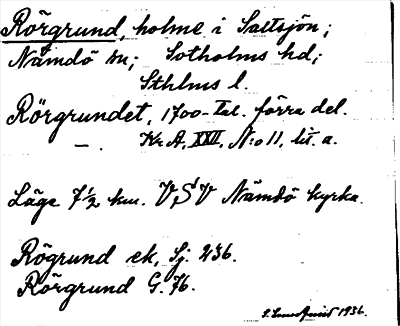 Rörgrund, holme i Saltsjön;
Nämdö sn; Sotholms hd;
Sthlms l.
Rörgrundet, 1700-tal. förra del.
— . Kr. A, XXII, N:o 11, lit. a.
Läge 7½ km. VSV Nämdö kyrka.
Rögrund ek, Sj. 236.
Rörgrund G. 76.
1936.